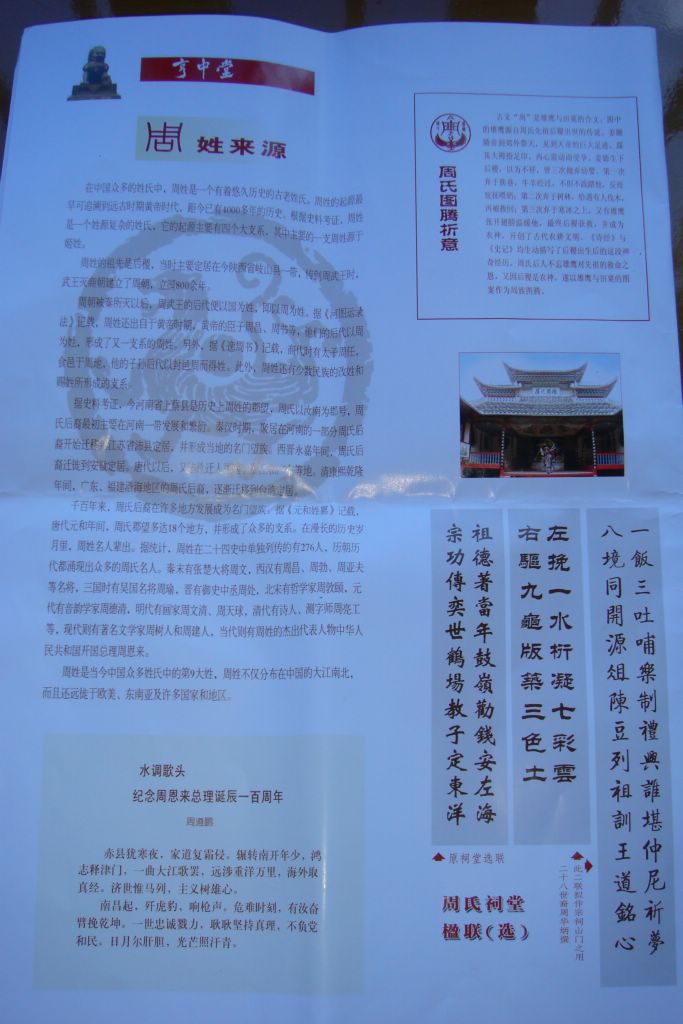 亨中堂
周 姓来源
在中国众多的姓氏中，周姓是一个有着悠久历史的古老姓氏。周姓的起源最
早可追溯到远古时期黄帝时代，距今已有4000多年的历史。根据史料考证，周姓
是一个姓源复杂的姓氏，它的起源主要有四个大支系，其中主要的一支周姓源于
姬姓。
周姓的祖先是后稷，当时主要定居在今陕西省岐山县一带，传到周武王时，
武王灭商朝建立了周朝，立国800余年。
周朝被秦所灭以后，周武王的后代便以国为姓，即以周为姓。据《河图运录
法》记载，周姓还出自于黄帝时期，黄帝的臣子周昌、周书等，他们的后代以周
为姓，形成了又一支系的周姓。另外，据《逸周书》记载，商代时有太子周任，
食邑于周地，他的子孙后代以封邑周而得姓。此外，周姓还有少数民族的改姓和
赐姓所形成的支系。
据史料考证，今河南省上蔡县是历史上周姓的郡望，周氏以汝南为郡号，周
氏后裔最初主要在河南一带发展和繁衍。秦汉时期，聚居在河南的一部分周氏后
裔开始迁移江苏省沛县定居，并形成当地的名门望族。西晋永嘉年间，周氏后
裔迁徙到安徽定居。唐代以后，又 迁入 等地。清康熙乾隆
年间，广东、福建沿海地区的周氏后裔，逐渐迁移到台湾定居。
千百年来，周氏后裔在许多地方发展成为名门望族。据《元和姓纂》记载，
唐代元和年间，周氏郡望多达18个地方，并形成了众多的支系。在漫长的历史岁
月里，周姓名人辈出。据统计，周姓在二十四史中单独列传的有276人，历朝历
代都涌现出众多的周氏名人。秦末有张楚大将周文，西汉有周昌、周勃、周亚夫
等名将，三国时有吴国名将周瑜，晋有御史中丞周处，北宋有哲学家周敦颐，元
代有音韵学家周德清，明代有画家周文清、周天球，清代有诗人、测字师周亮工
等，现代则有著名文学家周树人和周建人，当代则有周姓的杰出代表人物中华人
民共和国开国总理周恩来。
周姓是当今中国众多姓氏中的第9大姓，周姓不仅分布在中国的大江南北，
而且还远徙于欧美、东南亚及许多国家和地区。
水调歌头
纪念周恩来总理诞辰一百周年
周道鹏
赤县犹寒夜，家道复霜侵。辗转南开年少，鸿
志释津门，一曲大江歌罢，远涉重洋万里，海外取
真经。济世惟马列，主义树雄心。
南昌起，歼虎豹，响枪声。危难时刻，有汝奋
臂挽乾坤。一世忠诚戮力，耿耿坚持真理，不负党
和民。日月尔肝胆，光芒照汗青。
周氏图腾祈意
古文“周”是雄鹰与田菜的合文。图中
的雄鹰源自周氏先祖后稷出世的传说。姜嫄
随帝到郊外祭天，见到天帝的巨大足迹，踩
其大拇指足印，内心震动而受孕。姜嫄生下
后稷，以为不祥，曾三次抛弃幼婴。第一次
弃于狭巷，牛羊经过，不但不践踏他，反而
庇抚喂奶；第二次弃于树林，恰遇有人伐木，
再被救回；第三次弃于寒冰之上，又有雄鹰
张开翅膀温暖他，最终后稷获救，并成为
农神，开创了古代农耕文明。《诗经》与
《史记》均生动描写了后稷出生后的这段神
奇经历。周氏后人不忘雄鹰对先祖的救命之
恩，又因后稷是农神，遂以雄鹰与田菜的图
案作为周族图腾。
一飯三吐哺樂制禮興誰堪仲尼祈夢
八境同開源俎陳豆列祖訓王道銘心
左挽一水析凝七彩雲
右驅九龜版築三色土
祖德著當年鼓嶺勸錢安左海
宗功傳奕世鶴場教子定東洋
原祠堂选联
此二联拟作宗祠山门之用
二十八世裔周华炳撰
周氏祠堂
楹联(选)